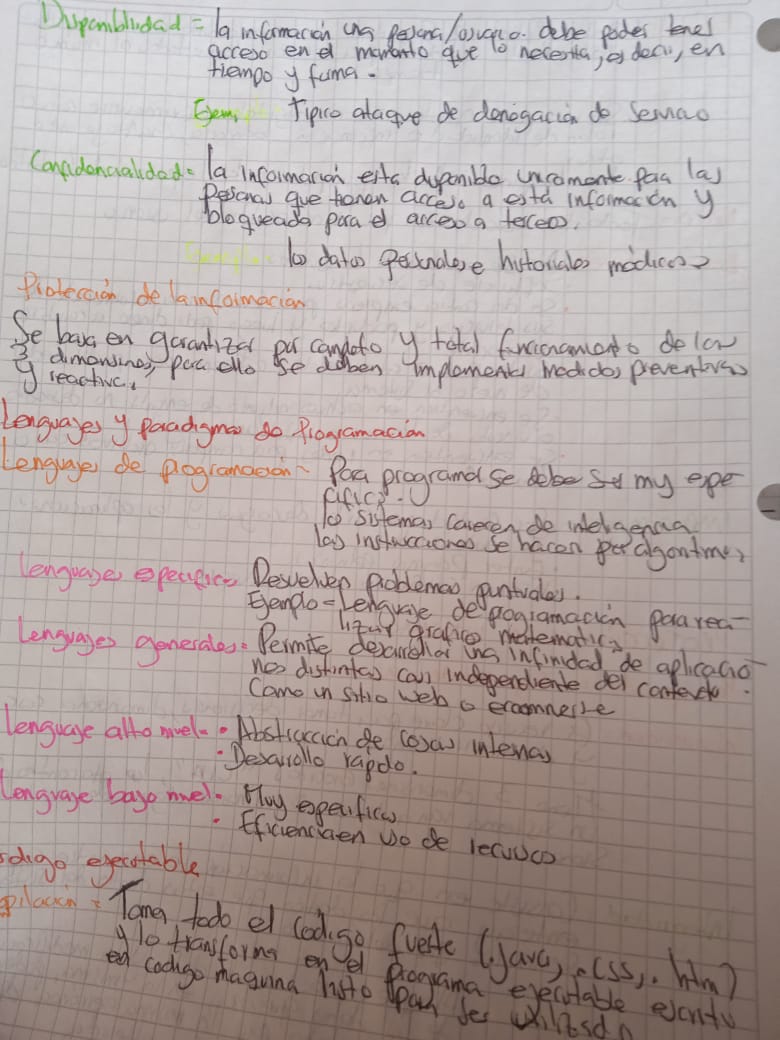 Disponibilidad = la información una persona/usuario. debe poder tener
acceso en el momento que lo necesita, es decir, en
tiempo y forma.
Ejem Tipico ataque de denegación de servicio
Confidencialidad = la información esta disponible unicamente para las
personas que tienen acceso a está información y
bloqueada para el acceso a terceros.
Ejemplo los datos personales e historiales médicos
Protección de la información
Se basa en garantizar por completo y total funcionamiento de las
3 dimensiones, para ello se deben implementar medidas preventivas
y reactivas
Lenguajes y paradigmas de Programación
Lenguajes de programación - Para programar se debe ser muy espe-
cifico.
los sistemas carecen de inteligencia
las instrucciones se hacen por algoritmos
Lenguajes especificos Resuelven problemas puntuales.
Ejemplo = Lenguaje de programación para rea-
lizar grafico matematico
Lenguajes generales = Permite desarrollar una infinidad de aplicacio-
nes distintas casi independiente del contexto.
Como un sitio web o ecommerse
Lenguaje alto nivel - • Abstracción de cosas internas
• Desarollo rapido.
Lenguaje bajo nivel - Muy especificos
• Eficiencia en uso de recursos
odigo ejecutable
pilación = Toma todo el codigo fuente (.java, .css, .htm)
y lo transforma en el programa ejecutable escrito
en codigo maquina listo para ser utilizado